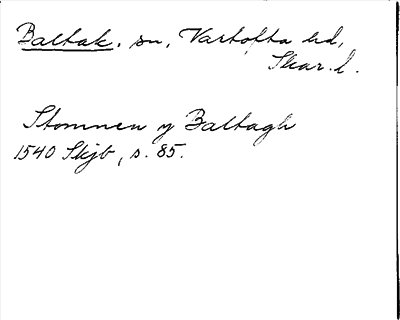 Baltak, sn, Vartofta hd,
Skar. l.
Stommen y Baltagh
1540 Skjb, s. 85.